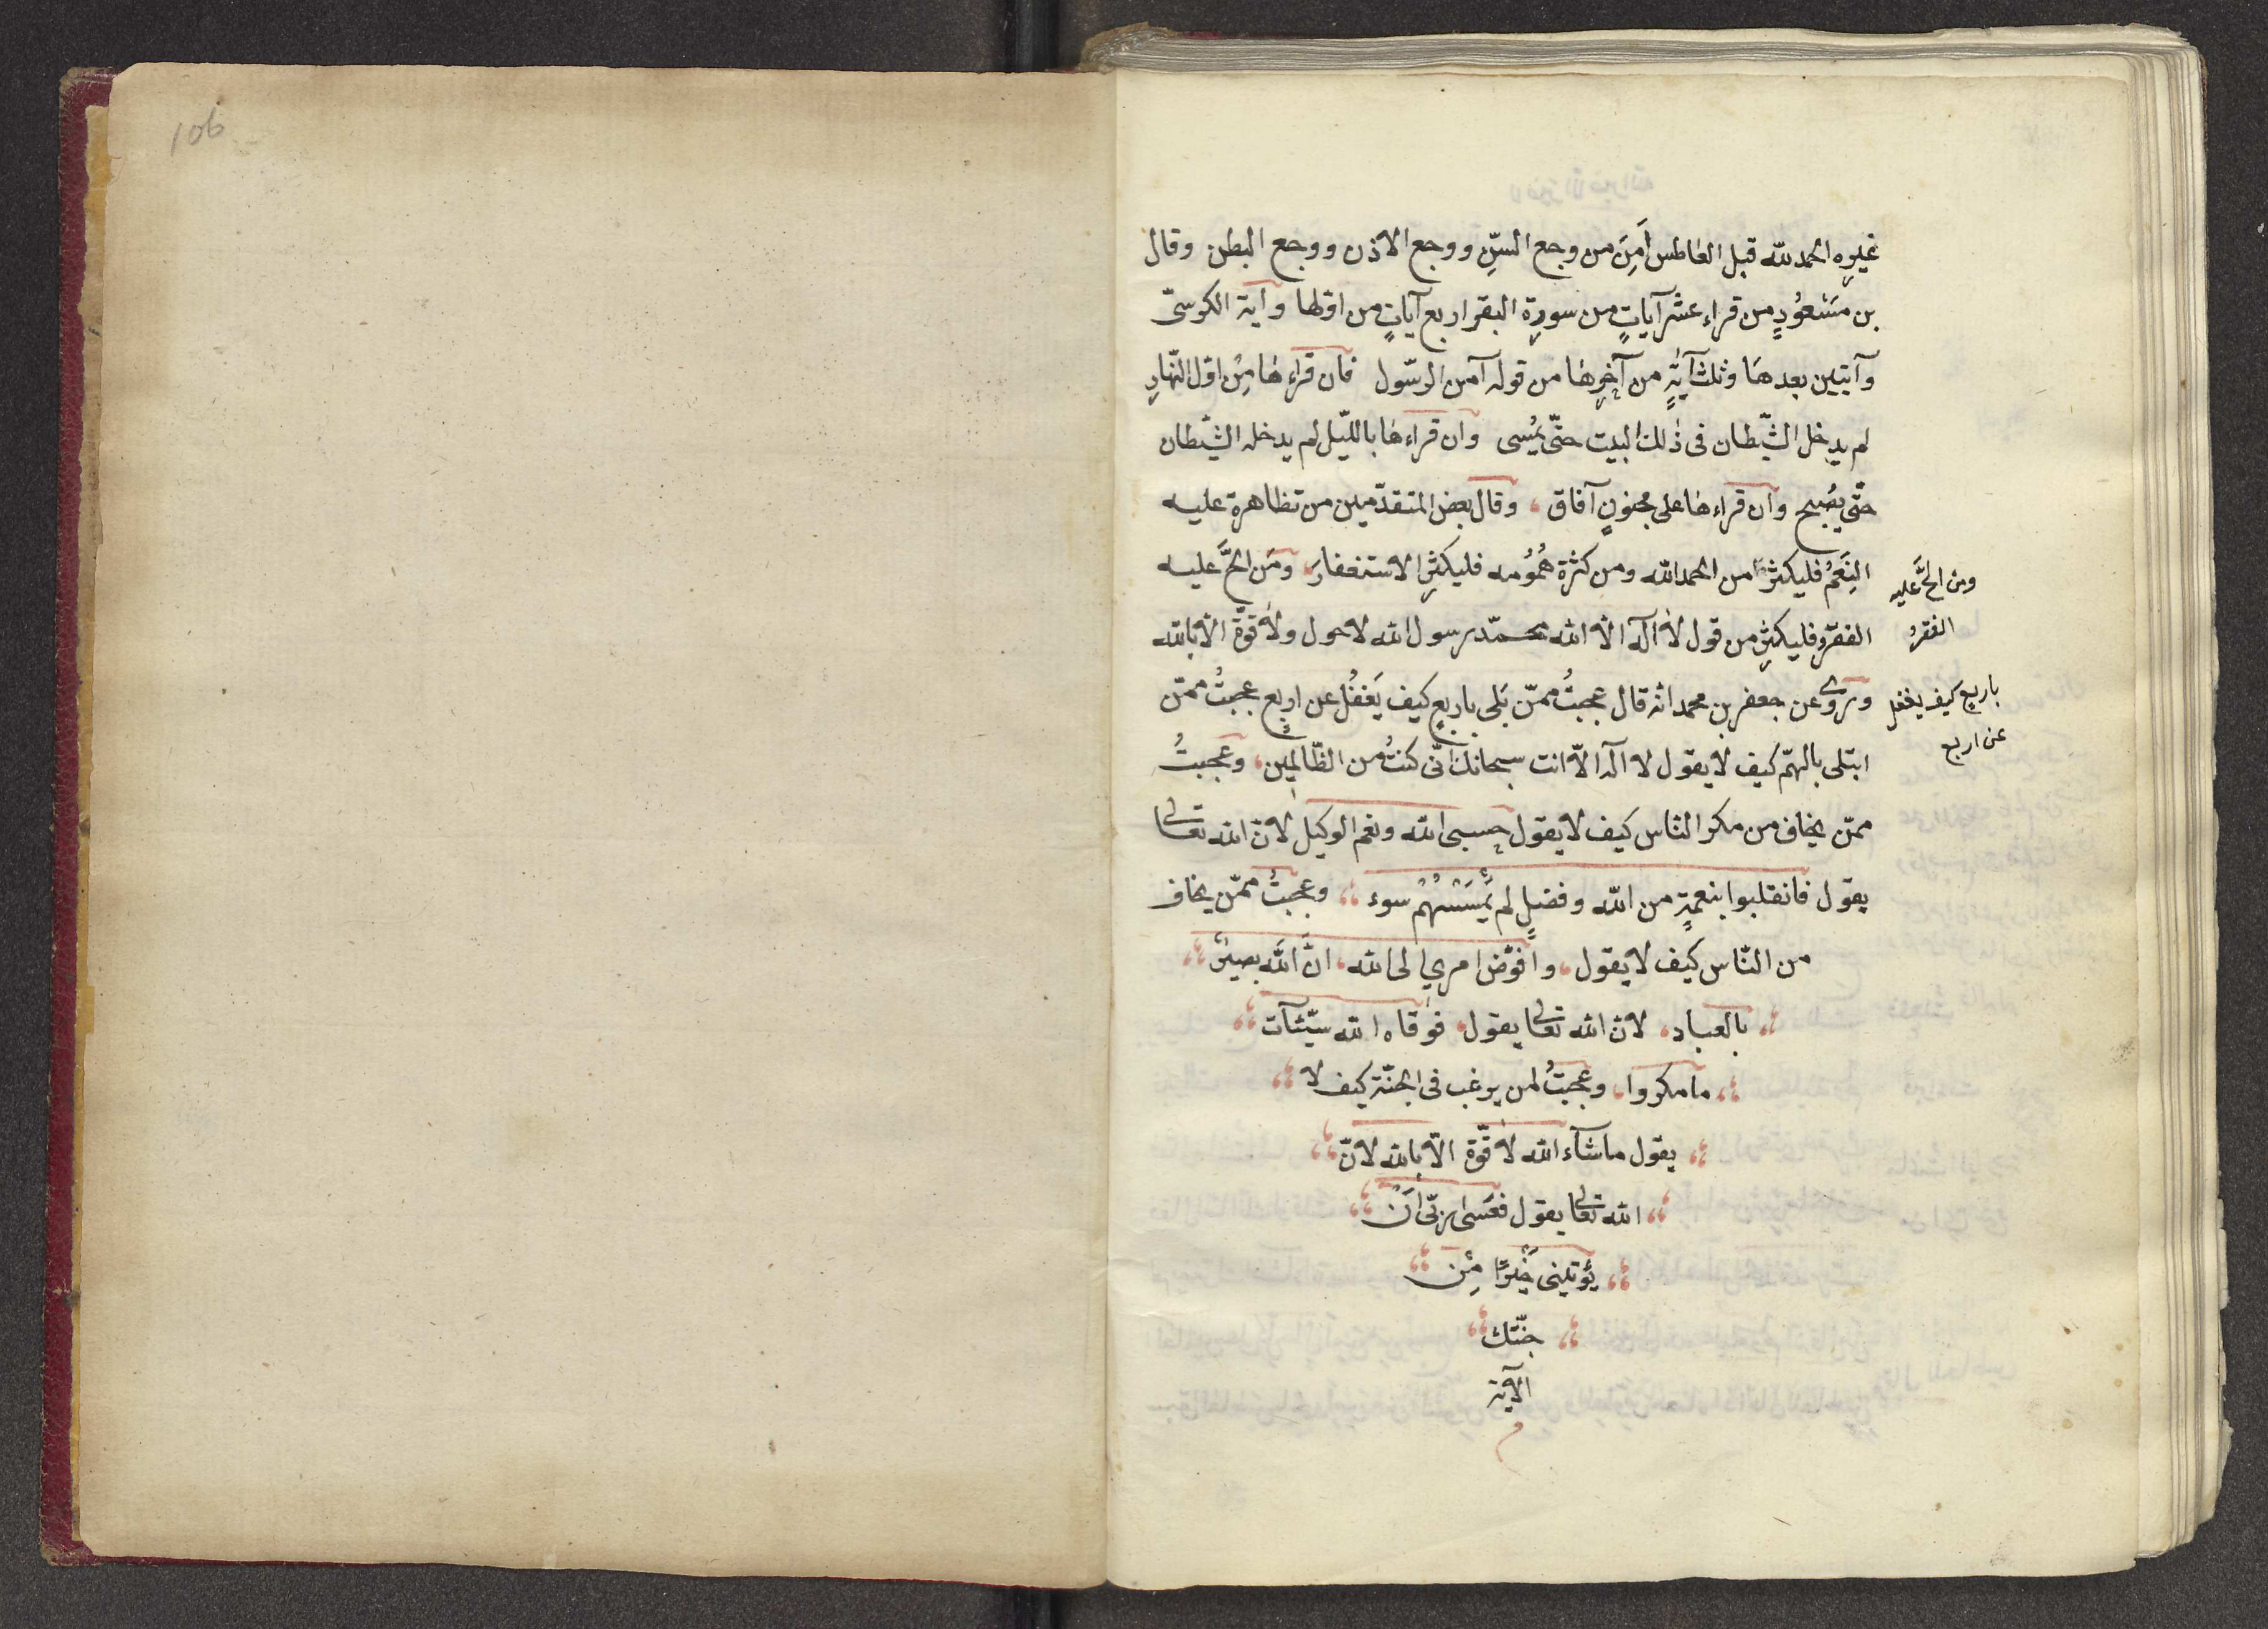 106
غيره الحمد لله قبل العاطس أَمِنَ من وجع السنّ ووجع الاذن ووجع البطن وقال
بن مَسْعوُدٍ من قراء عشر آياتٍ من سورة البقر اربع آياتٍ من اوّلها وآية الكرسىّ
وآيتين بعدها وثلث آيةٍ من آخرها من قوله آمن الرسّول فان قراءها مِنْ اوّل النّهارِ
لم يدخل الشّيطان فى ذٰلك البيت حتّى يمُسى وان قراءها بالليّل لم يدخله الشّيطان
حتّى يصُبح وان قراءها على مجنونٍ آفاق ، وقال بعض المتقدّمين من تظاهرة عليه
النِعَمُ فليكثر من الحمد الله ومن كثرة هُمُومه فليكثرِ الاستغفارَ، ومَن الحَّ عليه
الفقرُ فليكثر من قول لا آله الّا الله محمّد رسول الله لا حول ولا قوّة الّا بالله
وروى عن جعفر بن محمد انه قال عجبتُ ممّن بَلى باربع كيف يَغفُل عن اربع عجبتُ ممّن
ابتلى بالهمّ كيف لا يقول لا آله الّا انت سبحانك انّى كنتُ من الظّالمين، وعجبتُ
ممّن يخاف من مكر النّاس كيف لا يقول حسبى الله ونعم الوكيل لانّ الله تعالى
يقول فانقلبوا بنعمةٍ من الله وفضلٍ لم يَمْسَسْهُمْ سوء ،، وعجبتُ ممّن يخاف
من النّاس كيف لا يقول، وافوّض امري الى الله، انَّ الله بصيرٌ ،،
،، بالعباد، لانّ الله تعالى يقول، فوقاه الله سيّئآت ،،
،، ما مكروا، وعجبتُ لمن يرغب فى الجنّة كيف لا ،،
،، يقول ما شآء الله لا قوّة الّا بالله لانّ ،،
،، الله تعالى يقول فعَسٰى ربّى اَنْ ،،
،، يؤتينى خَيْرًا مِنْ ،،
،، جنّتك ،،
الآية
م
ومن الحَّ عليه
الفقرُ
باربع كيف يغفل
عن اربع